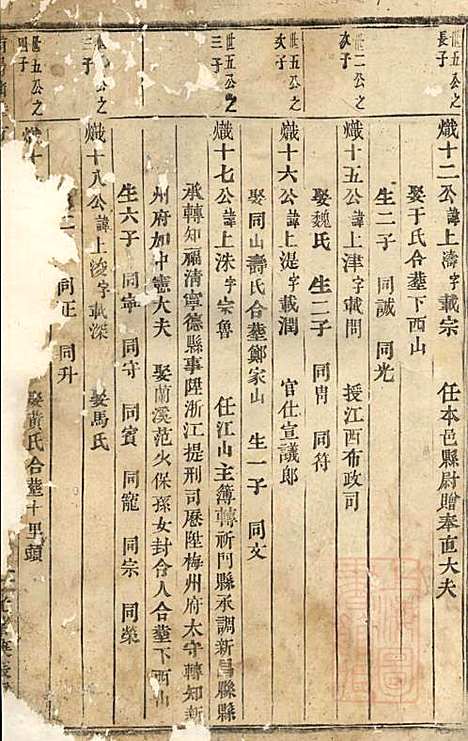 世五公之長子
熾十二公諱上濤字載宗 任本邑縣尉贈奉直大夫
娶于氏合塟下西山
生二子 同誠 同光
世二公之次子
熾十五公諱上津字載問 授江西布政司
娶魏氏 生二子 同冑 同符
世五公之次子
熾十六公諱上湜字載潤 官仕宣議郎
娶同山壽氏合塟鄭家山 生一子 同文
世五公之三子
熾十七公諱上洙字宗魯 任江山主簿轉祈門縣承調新昌縣縣
承轉知福清寧德縣事陞浙江提刑司歷陞梅州府太守轉知新
州府加中憲大夫 娶蘭溪范火保孫女封合人合塟下西山
生六子 同寧 同守 同賓 同寵 同宗 同榮
之三子
熾十八公諱上浚字載深 娶馬氏
二 同正 同升
世五公之四子
熾十 娶黃氏合塟十里頭